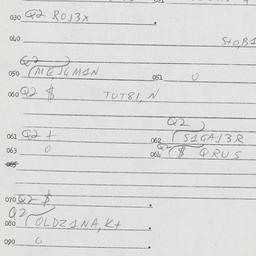 030 Q2 ROJ3X
040 STOB1
Q2
050 (MEJGM1N 051 0
060 Q2 $ TUT81, N
Q2
061 Q2 + 062 (S1GAJ3R
063 0 064 Q2 ($ QRUS
065
070 Q2 $
Q2
080 (OLDZ1NA, K+
090 0